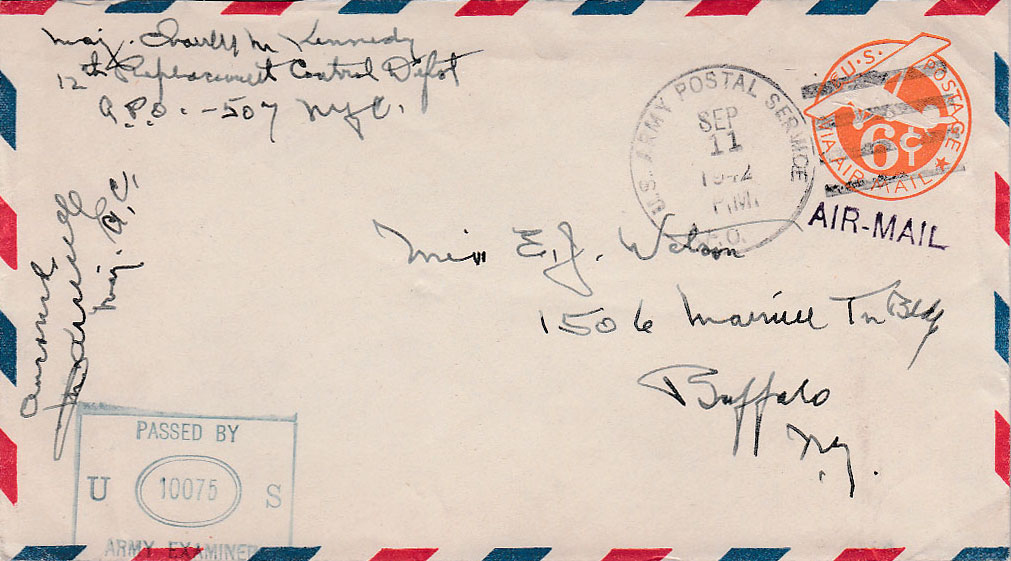 Maj. Charles M Kennedy
12th Replacement Control Depot
A.P.O. - 507 NYC.
U.S. ARMY POSTAL SERVICE
SEP
11
1942
P.M.
A.P.O.
U.S. POSTAGE
6¢
VIA AIR MAIL
AIR-MAIL
Miss E. J. Watson
1506 Marine Tr Bldg
Buffalo
N.Y.
Maj. A.C.
PASSED BY
U 10075 S
ARMY EXAMINER